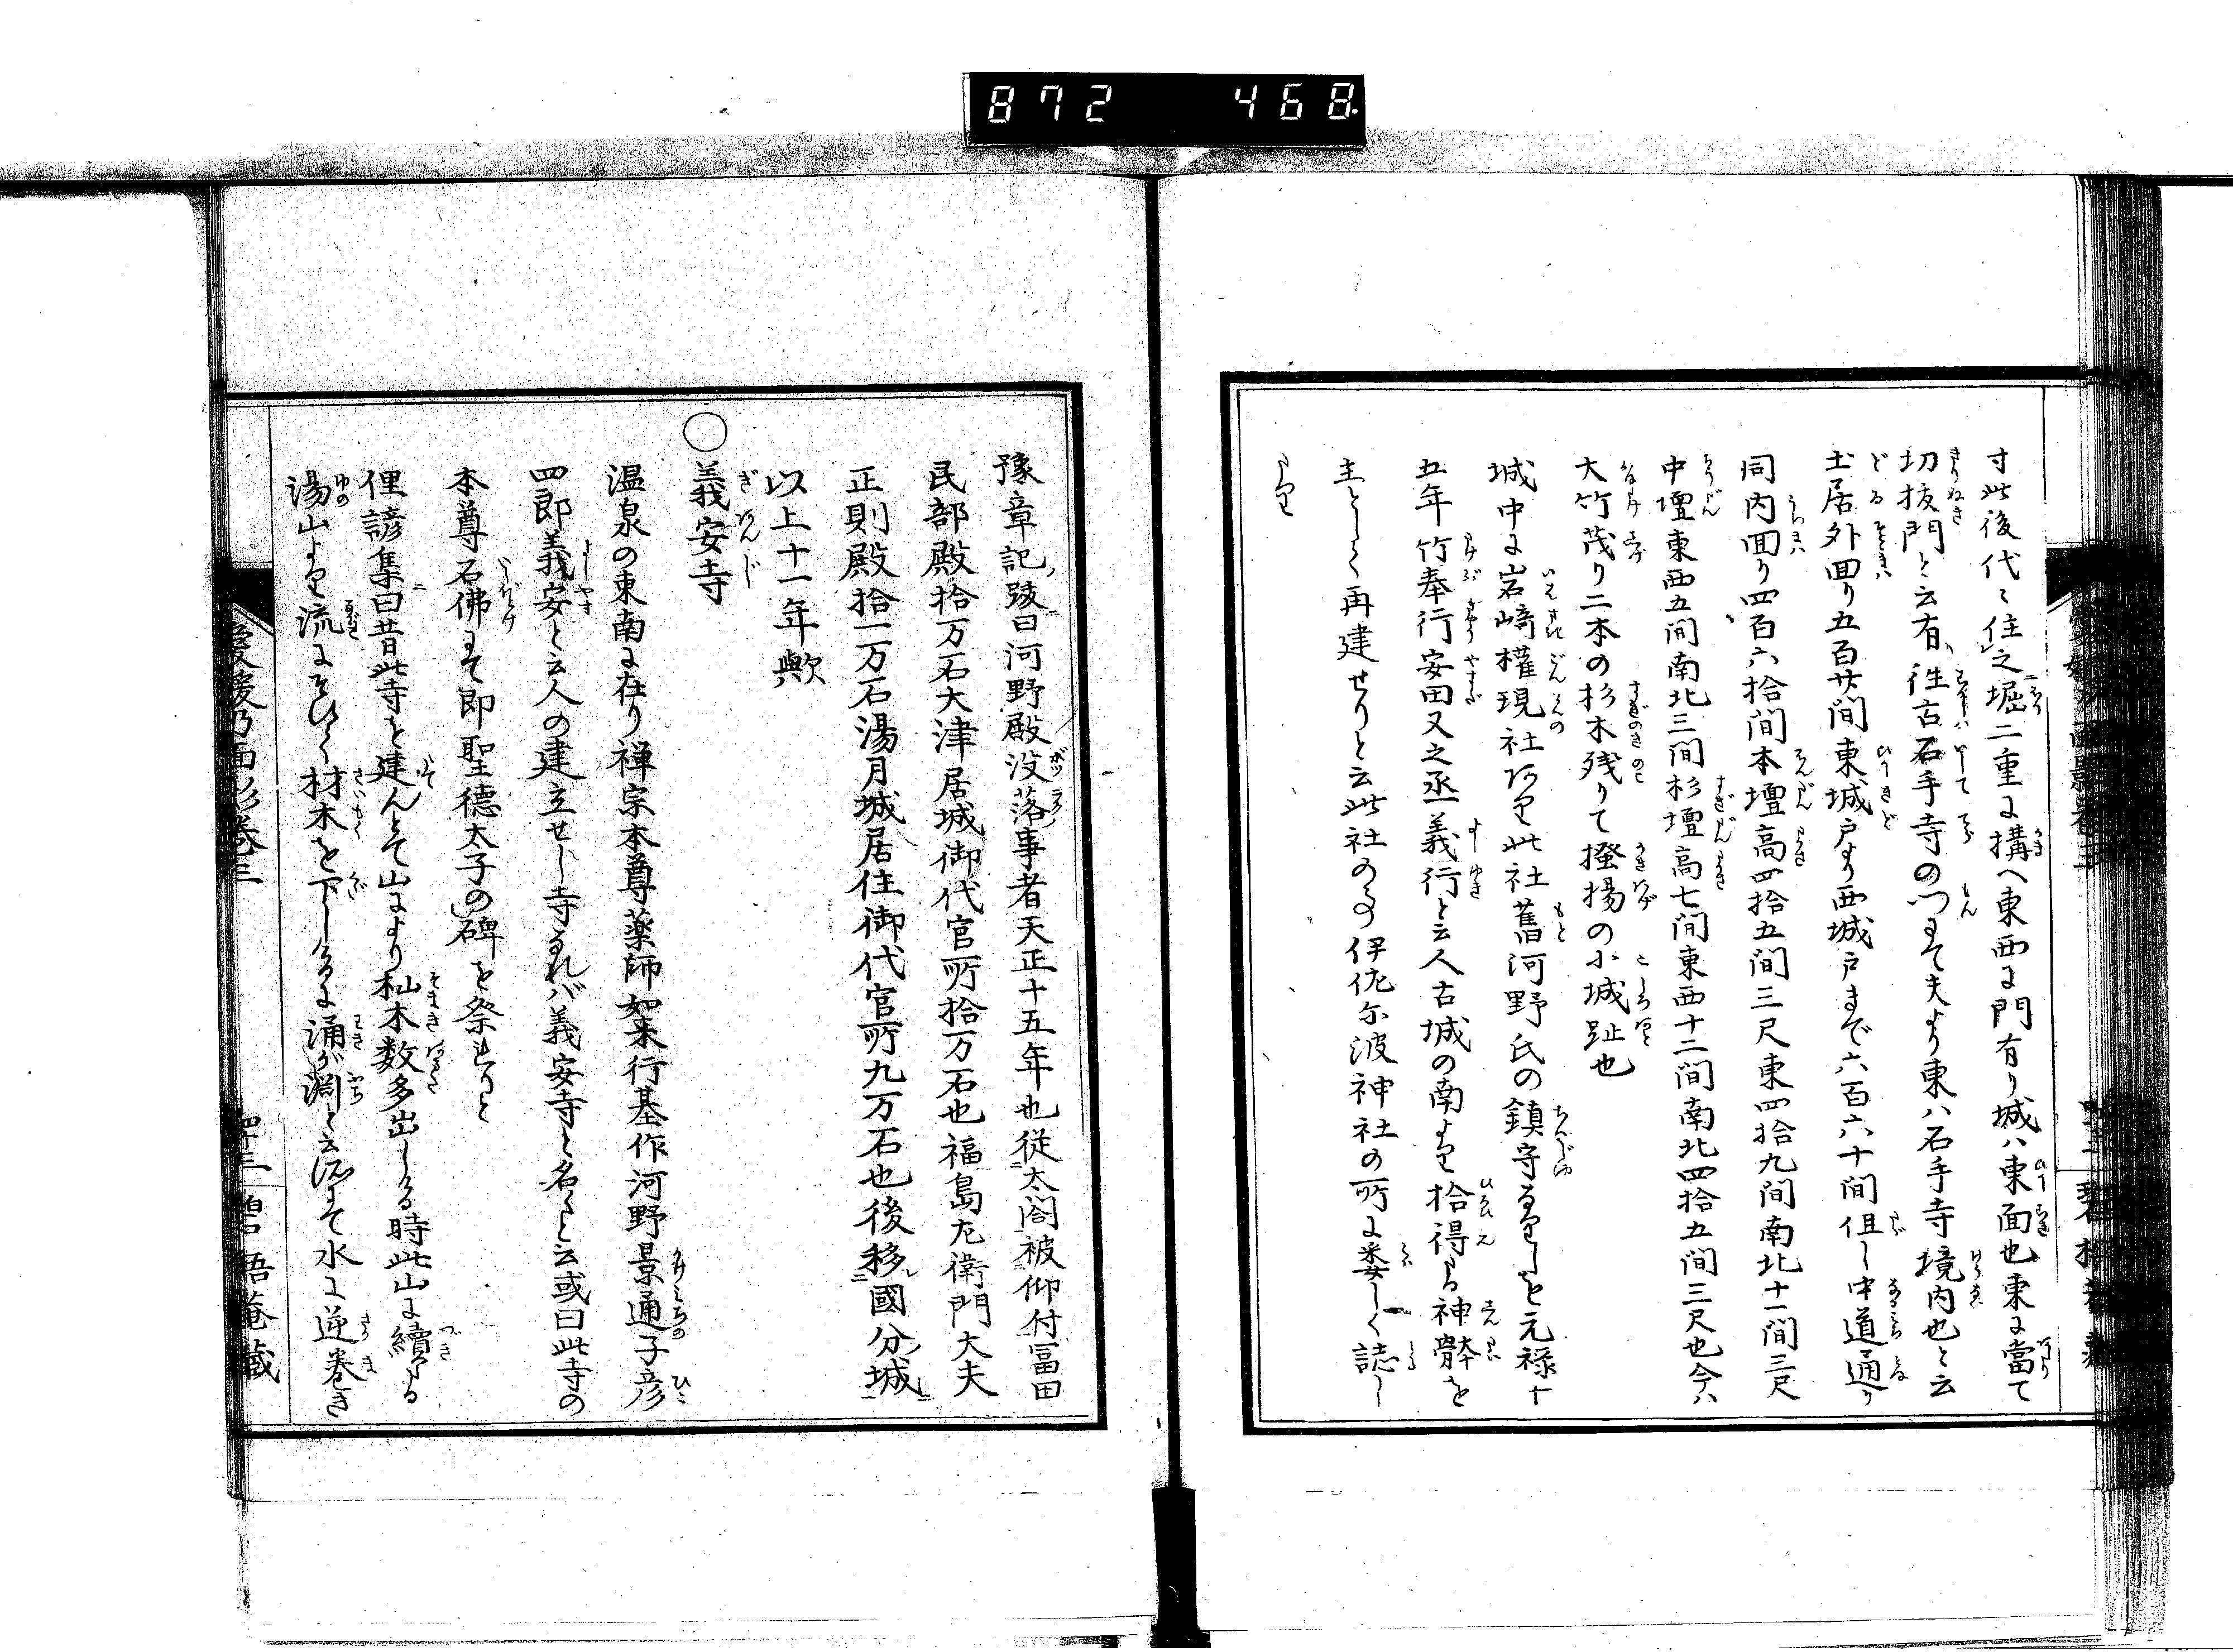 872 468
寸此後代々住之堀二重に構へ東西に門有り城ハ東面也東に當て
切抜門と云有往古石手寺の門にて夫より東ハ石手寺境内也と云
土居外回り五百廿間東城戸より西城戸まで六百六十間但し中道通り
同内回り四百六拾間本壇高四拾五間三尺東四拾九間南北十一間三尺
中壇東西五間南北三間杉壇高七間東西十二間南北四拾五間三尺也今ハ
大竹茂り二本の杉木残りて掻揚の小城趾也
城中に岩﨑權現社あり此社舊河野氏の鎮守なりしを元禄十
五年竹奉行安田又之丞義行と云人古城の南より拾得たる神骵を
主として再建せりと云此社の事伊佐尓波神社の所に委しく誌し
たり
豫章記跋曰河野殿没落事者天正十五年也従太閤被仰付冨田
民部殿拾万石大津居城御代官所拾万石也福島左衛門大夫
正則殿拾一万石湯月城居住御代官所九万石也後移國分城
以上十一年歟
○義安寺
温泉の東南に在り禅宗本尊薬師如来行基作河野景通子彦
四郎義安と云人の建立せし寺なれバ義安寺と名くと云或曰此寺の
本尊石佛にて即聖徳太子の碑を祭れりと
俚諺集曰昔此寺を建んとて山により杣木数多出しける時此山に續たる
湯山より流にそひて材木を下しけるに涌が淵と云所にて水に逆巻き
愛媛乃面影巻三 四十三 碧梧菴蔵